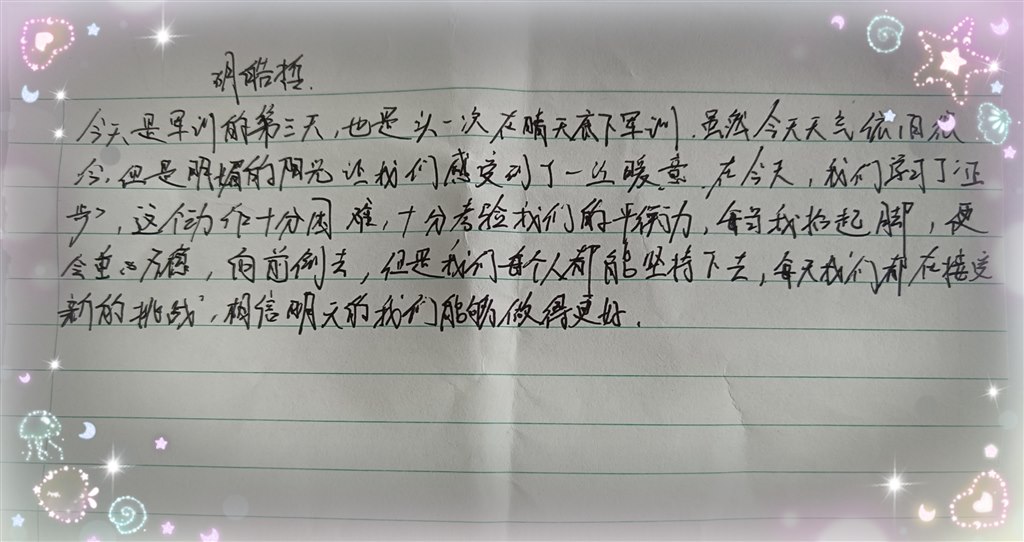 胡皓哲.
今天是军训的第三天,也是头一次在晴天底下军训.虽然今天天气依旧微
冷,但是明媚的阳光让我们感受到了一丝暖意.在今天,我们学习了正
步,这个动作十分困难,十分考验我们的平衡力,每当我抬起脚,便
会重心不稳,向前倒去,但是我们每个人都能坚持下去,每天我们都在接受
新的挑战,相信明天的我们能够做得更好.